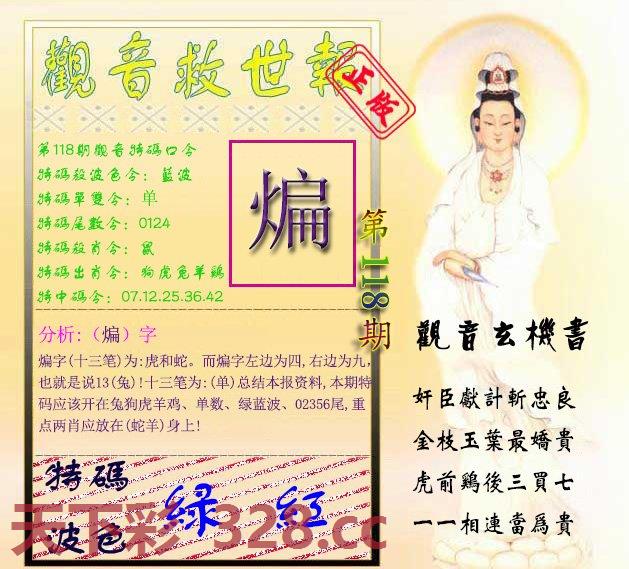 觀音救世報
正版
第118期觀音特碼口令
特碼殺波色令：藍波
特碼單雙令：单
特碼尾數令：0124
特碼殺肖令：鼠
特碼出肖令：狗虎兔羊鷄
特中碼令：07.12.25.36.42
煸
第118期
分析:（煸）字
煸字(十三笔)为:虎和蛇。而煸字左边为四,右边为九,
也就是说13(兔)!十三笔为:(单)总结本报资料,本期特
码应该开在兔狗虎羊鸡、单数、绿蓝波、02356尾,重
点两肖应放在(蛇羊)身上!
觀音玄機書
奸臣獻計斬忠良
金枝玉葉最嬌貴
虎前鷄後三買七
一一相連當爲貴
特碼
波色
绿 红
天下彩 328.cc